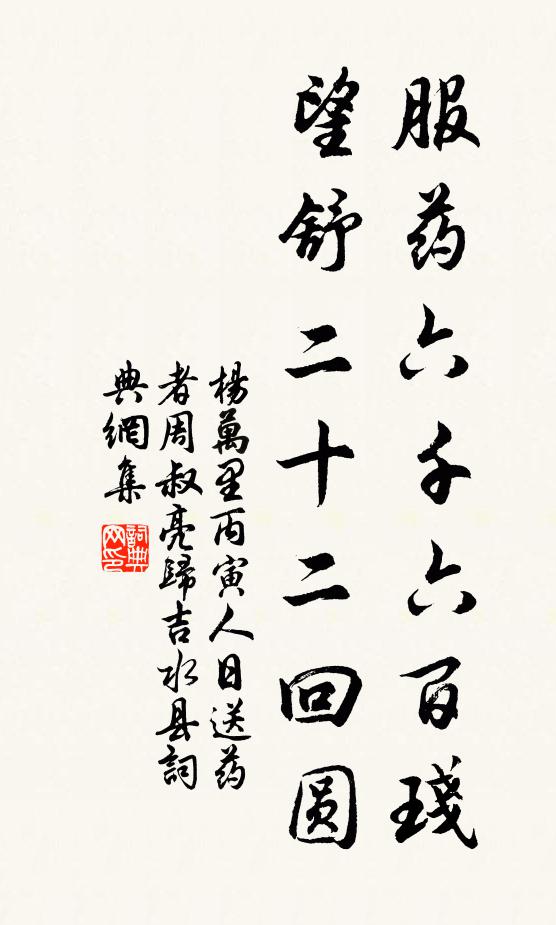 服药六千六百琖
望舒二十二回圆
楊萬里丙寅人日送药
者周叔亮歸吉水县詞
典網集
詞典
网印